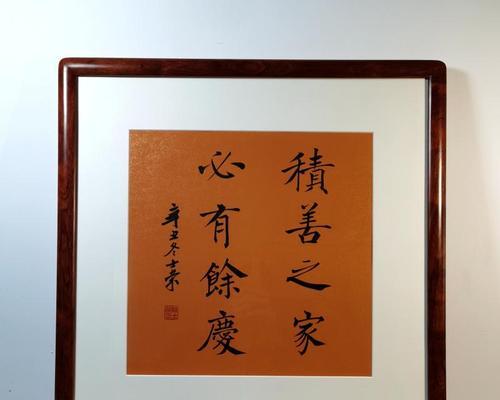 積善之家
必有餘慶
辛丑冬士榮